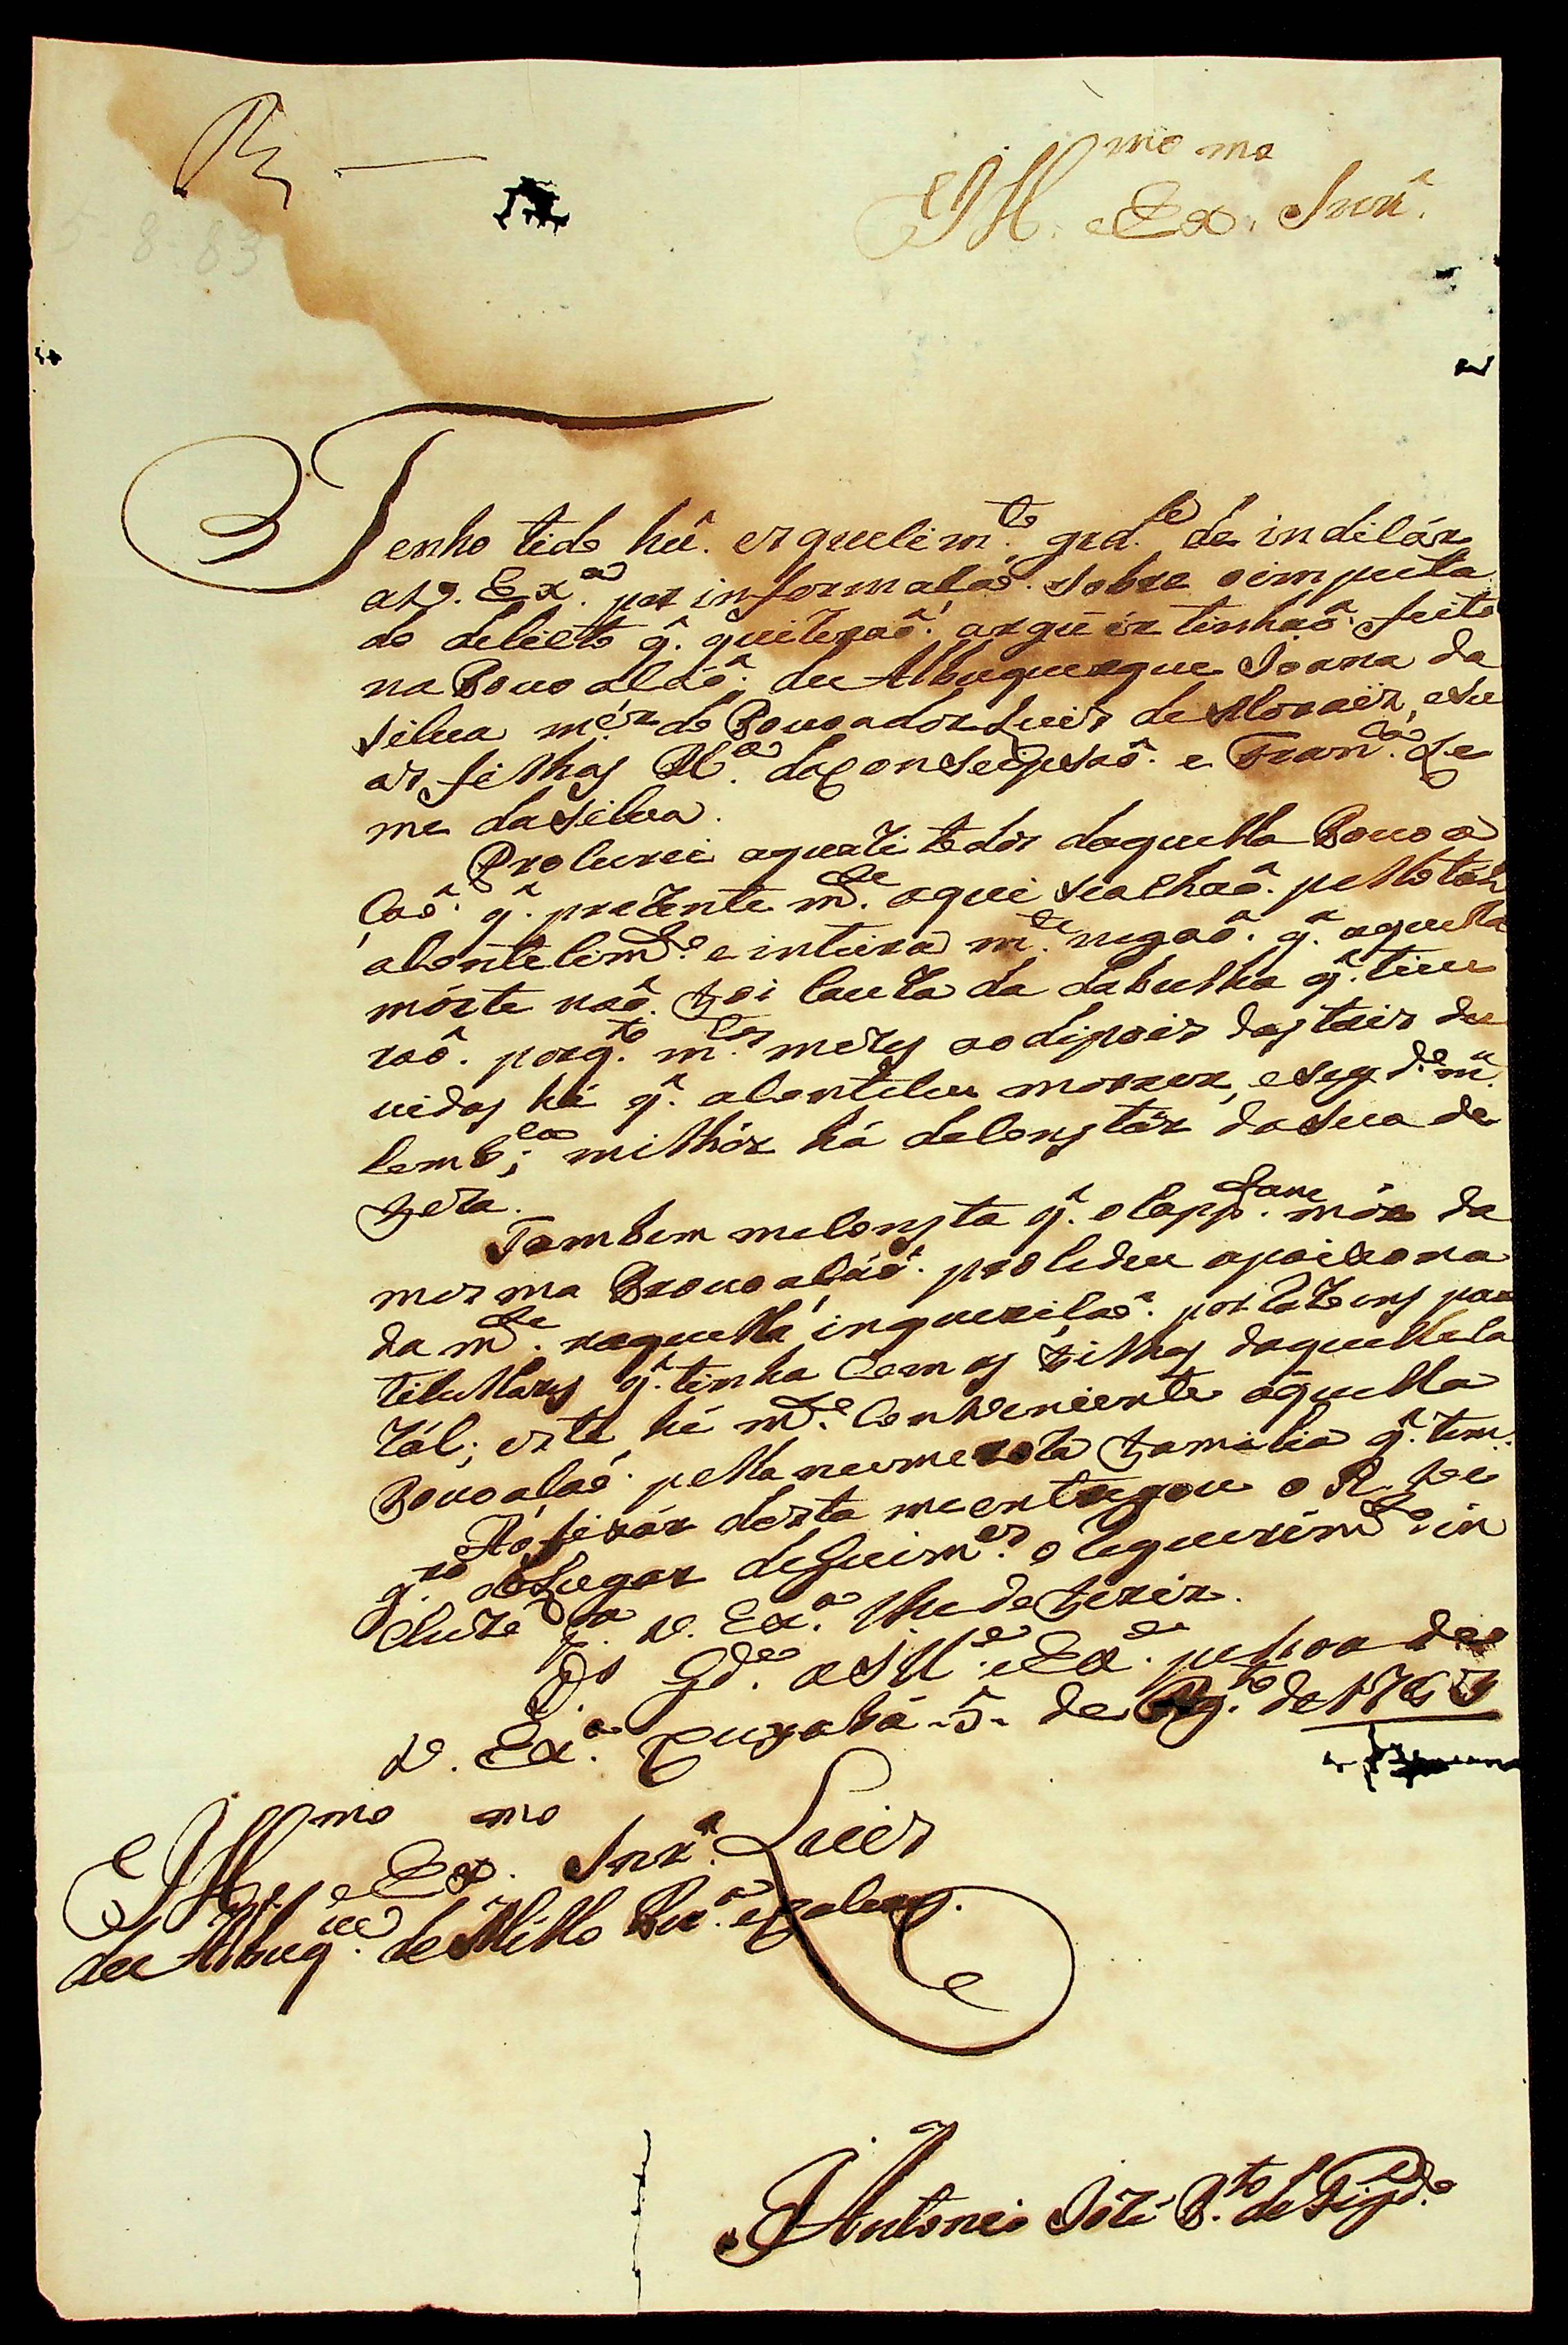 R.
5 8 83
Ill.mo e Ex.mo Snr̂.
Tenho tido hũ. esquecim.to grd.e de indicár
a V. Ex.a por informacaõ. sobre o imputa
do delicto q̂. quizeraõ. arguir tinhaõ. feito
na Povoacaõ. de Albuquerque Joana da
Silva m.er do Povoador Luis de Moraes, e su
as filhas M.a da Conseipsaõ. e Fran.ca Le
me da Silva.
Procurei aquazi todos daquella Povoa
çaõ. q̂. prezente m.te aqui se achaõ. pello tál
acontecim.to e inteira m.te negaõ. q̂. aquella
mórte naõ. foi cauza da da bulha q̂. tive
raõ. porq.to m.tos mezes ao dipois das tais du
vidas hé q̂. aconteceu morrer, e seg.do m̂.
lemb.ca; milhór há de constár da sua de
feza.
Tambem me consta q̂. o Capp.am mór da
mesma Provoacáõ. procedeu apaixona
da m.te naquella inquericaõ. por razoens par
ticullares q̂. tinha com as filhas daquelle ca
zál; este hé m.to conveniente aquella
Povoacaõ. pella numeroza familia q̂. tem.
Ao fixár desta me entregou o R.
q.ro do Lugar de Guim.es o requerim.to in
cluzo p.a V. Ex.a lhe deferir.
D.s Gd.e a Ill.e e Ex.e pessoa de
V. Ex.a Cuyabá 5 de Ag.to de 178
Ill.mo e Ex.mo Snr̂. Luis
de Albuq.ue de Mello Pr.a e Caceres.
Antonio Jozé P.to de Figd.o